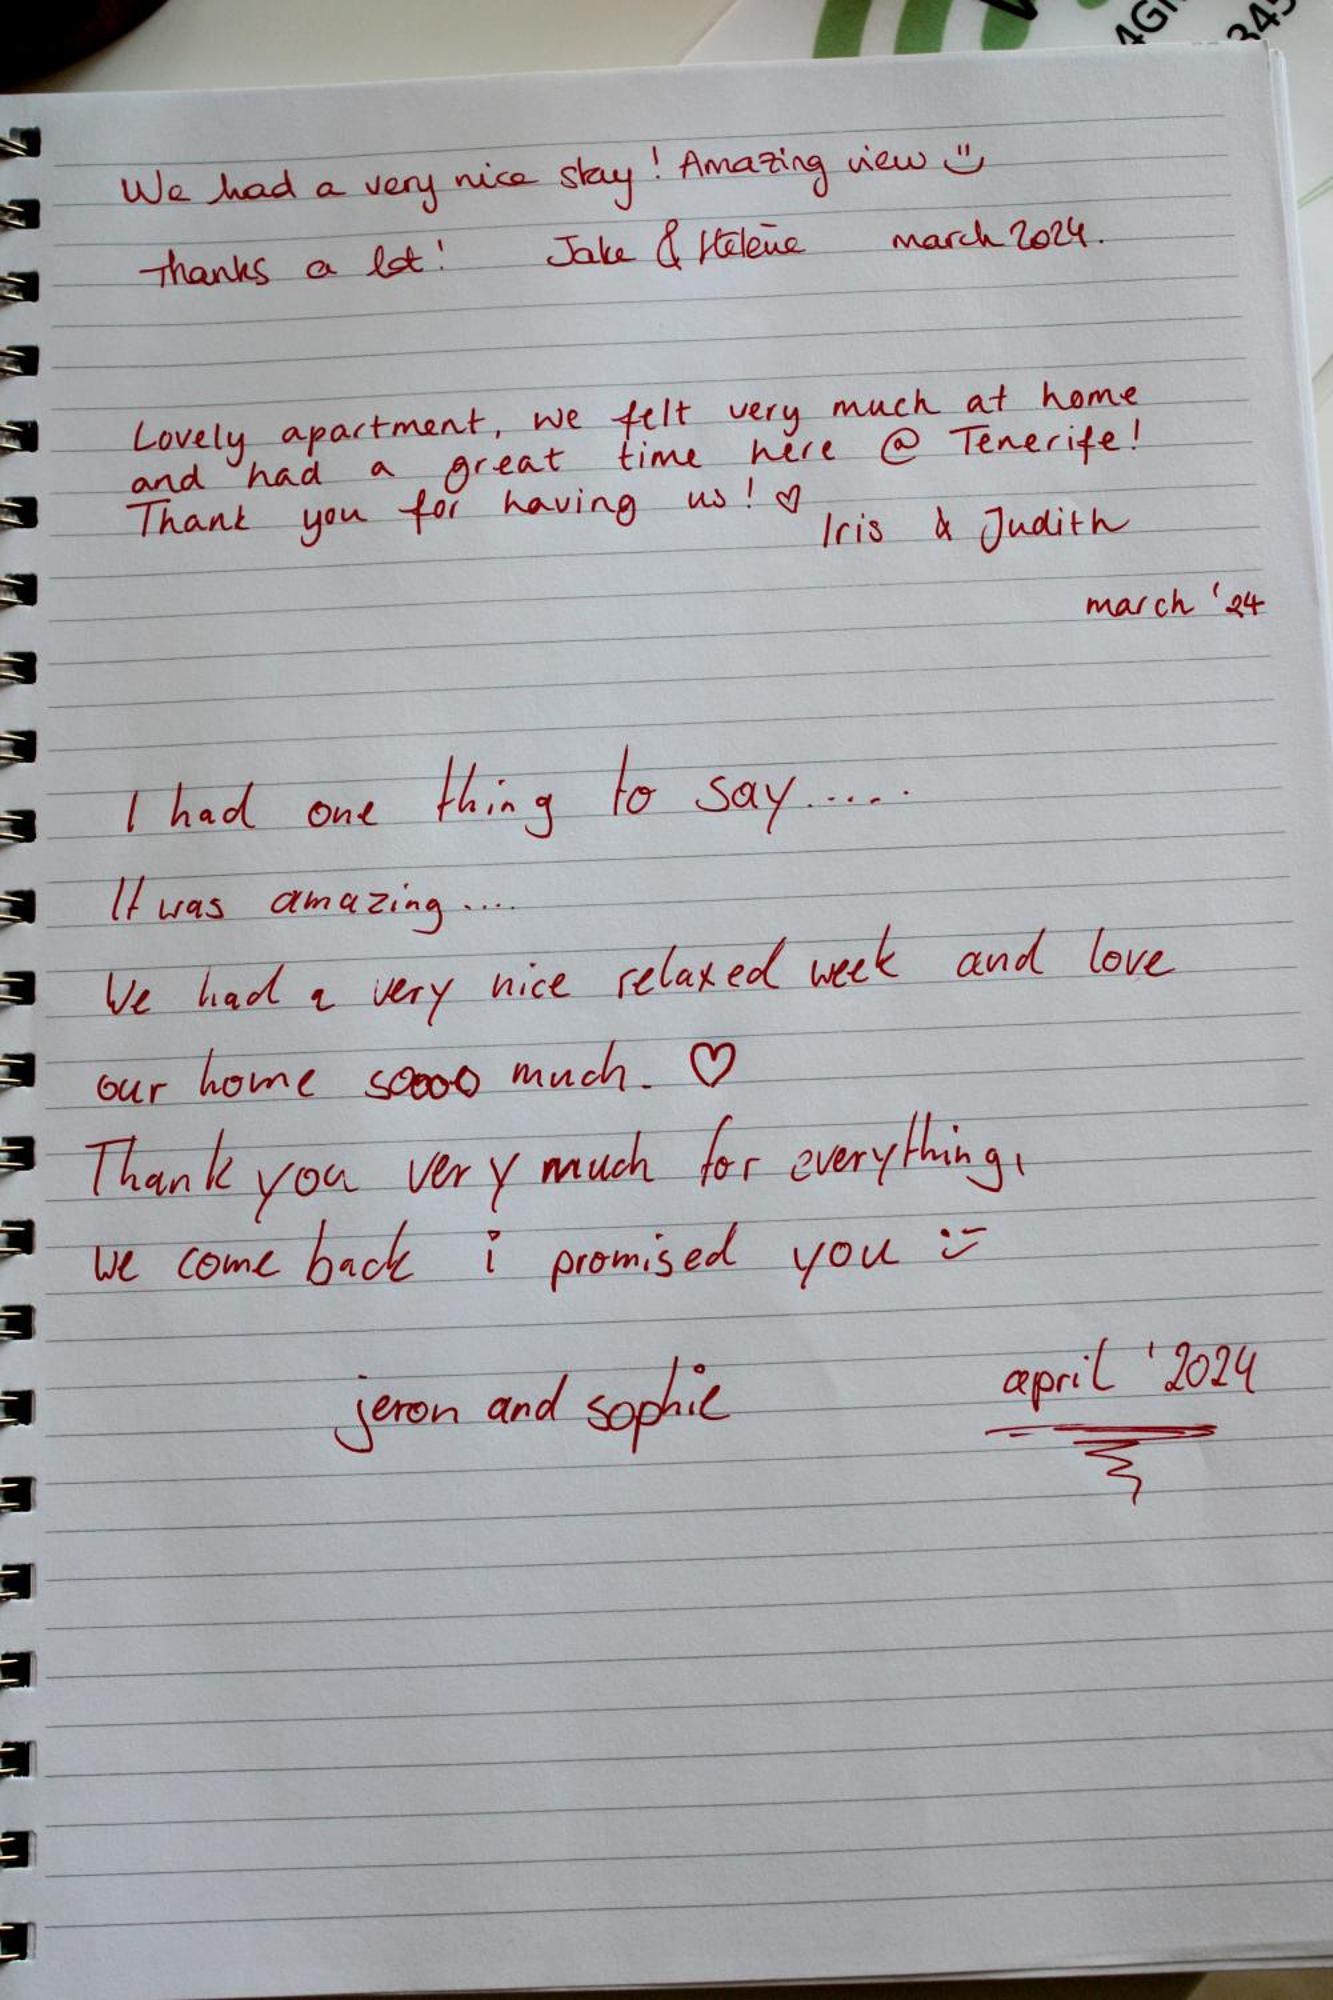 We had a very nice stay! Amazing view
Thanks a lot! Jake & Helene march 2024.
Lovely apartment, we felt very much at home
and had a great time here @ Tenerife!
Thank you for having us! ♡
Iris & Judith
march '24
I had one thing to say.....
It was amazing....
We had a very nice relaxed week and love
our home soooo much. ♡
Thank you very much for everything,
we come back i promised you :)
jeron and sophie april '2024